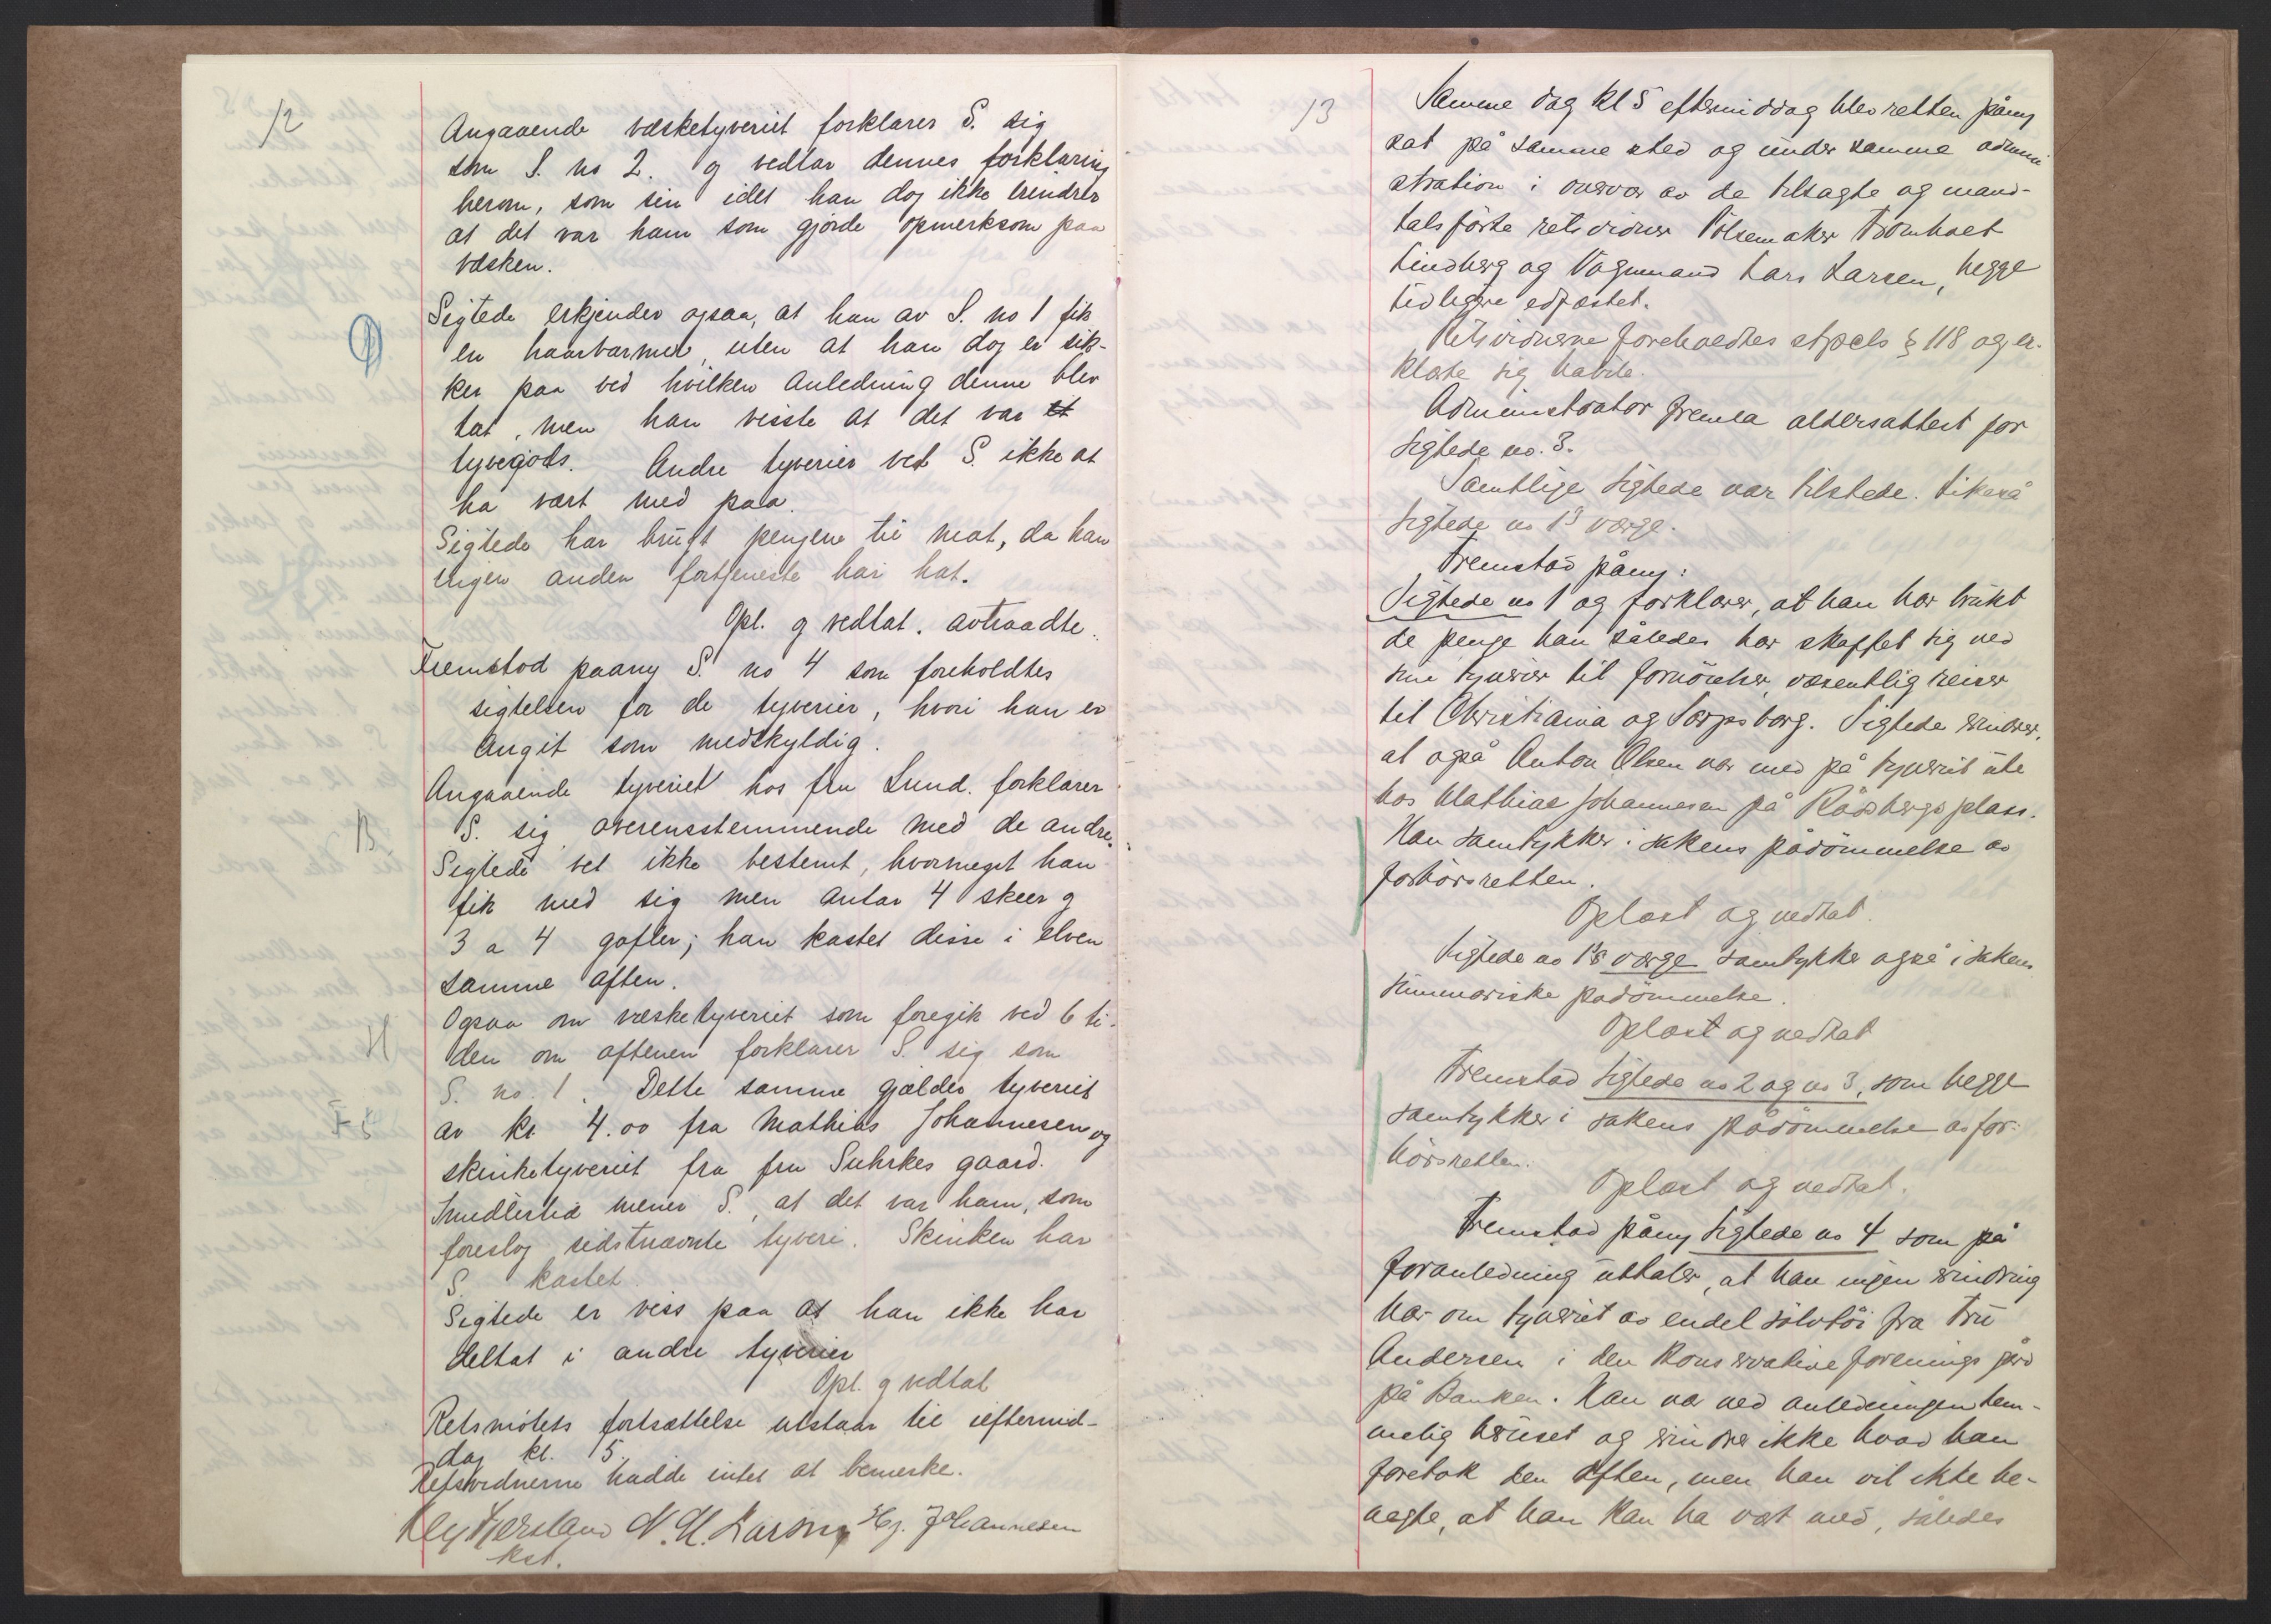 12
Angaaende væsketyveriet forklarer S. sig
som S. no 2. g vedtar dennes forklaring
herom, som sin idet han dog ikke erindrer
at det var ham som gjorde opmerksom paa
væsken.
Sigtede erkjender ogsaa, at han av S. no 1 fik
en haarbarmed, uten at han dog er sik-
ker paa ved hvilken anledning denne blev
tat, men han visste at det var et
tyvegods. Andre tyverier vet S. ikke at
ha vært med paa.
Sigtede har brugt pengene til mat, da han
ingen anden fortjeneste har hat.
Opl. g vedtat. avtraadte.
Fremstod paany S. no 4 som foreholdtes
sigtelsen for de tyverier, hvori han er
angit som medskyldig.
Angaaende tyveriet hos fru Lund. forklarer
B
S. sig overensstemmende med de andre.
Sigtede vet ikke bestemt, hvormeget han
fik med sig men antar 4 skeer g
3 a 4 gafler; han kastet disse i elven
samme aften.
Ogsaa om væsketyveriet som foregik ved 6 ti-
H
den om aftenen forklarer S. sig som
S. no. 1. Dette samme gjælder tyveriet
av kr. 4.00 fra Mathias Johannesen og
skinketyveriet fra fru Suhrkes gaard.
Imidlertid mener S., at det var ham, som
foreslog sidstnævnte tyveri. Skinken har
S. kastet.
Sigtede er viss paa at han ikke har
deltat i andre tyverier
Opl. g vedtat
Retsmötets fortsættelse utstaar til eftermid-
dag kl. 5.
Retsvidnerne hadde intet at bemerke.
N. M. Larsen Hj. Johannesen
kst.
13
Samme dag kl 5 eftermiddag blev retten påny
sat på samme sted og under samme admini
stration i overvær av de tilsagte og mand-
talsförte retsvidner Pölsemaker Tromhaet
Lindberg og Vognmand Lars Larsen, begge
tidligere edfæstet.
Retsvidnerne foreholdtes stpcls § 118 og er-
klærte sig habile.
Administrator fremla aldersattest for
sigtede no. 3.
Samtlige sigtede var tilstede. Likeså
sigtede no 1s værge.
Fremstod påny:
Sigtede no 1 og forklarer, at han har brukt
de penge han således har skaffet sig ved
sine tyverier til fornöielser, væsentlig reiser
til Christiania og Sarpsborg. Sigtede erindrer,
at også Anton Olsen var med på tyveriet ute
hos Mathias Johannesen på Rödsbergs plass.
Han samtykker i sakens pådömmelse av
forhörsretten.
Oplæst og vedtat.
Sigtede no 1's værge samtykker også i sakens
summariske pådömmelse.
Oplæst og vedtat
Fremstod sigtede no 2 og no 3, som begge
samtykker i sakens pådömmelse av for-
hörsretten.
Oplæst og vedtat.
Fremstod påny sigtede no 4 som på
foranledning uttaler, at han ingen erindring
har om tyveriet av endel sölvtöi fra Fru
Andersen i den Konservative forenings gård
på Banken. Han var ved anledningen tem-
melig beruset og erindrer ikke hvad han
foretok den aften, men han vil ikke be-
negte, at han kan ha vært med, således